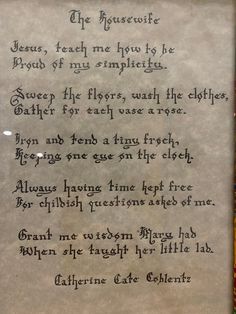 The Housewife
Jesus, teach me how to be
Proud of my simplicity.
Sweep the floors, wash the clothes,
Gather for each vase a rose.
Iron and tend a tiny frock,
Keeping one eye on the clock.
Always having time kept free
For childish questions asked of me.
Grant me wisdom Mary had
When she taught her little lad.
Catherine Cate Coblentz